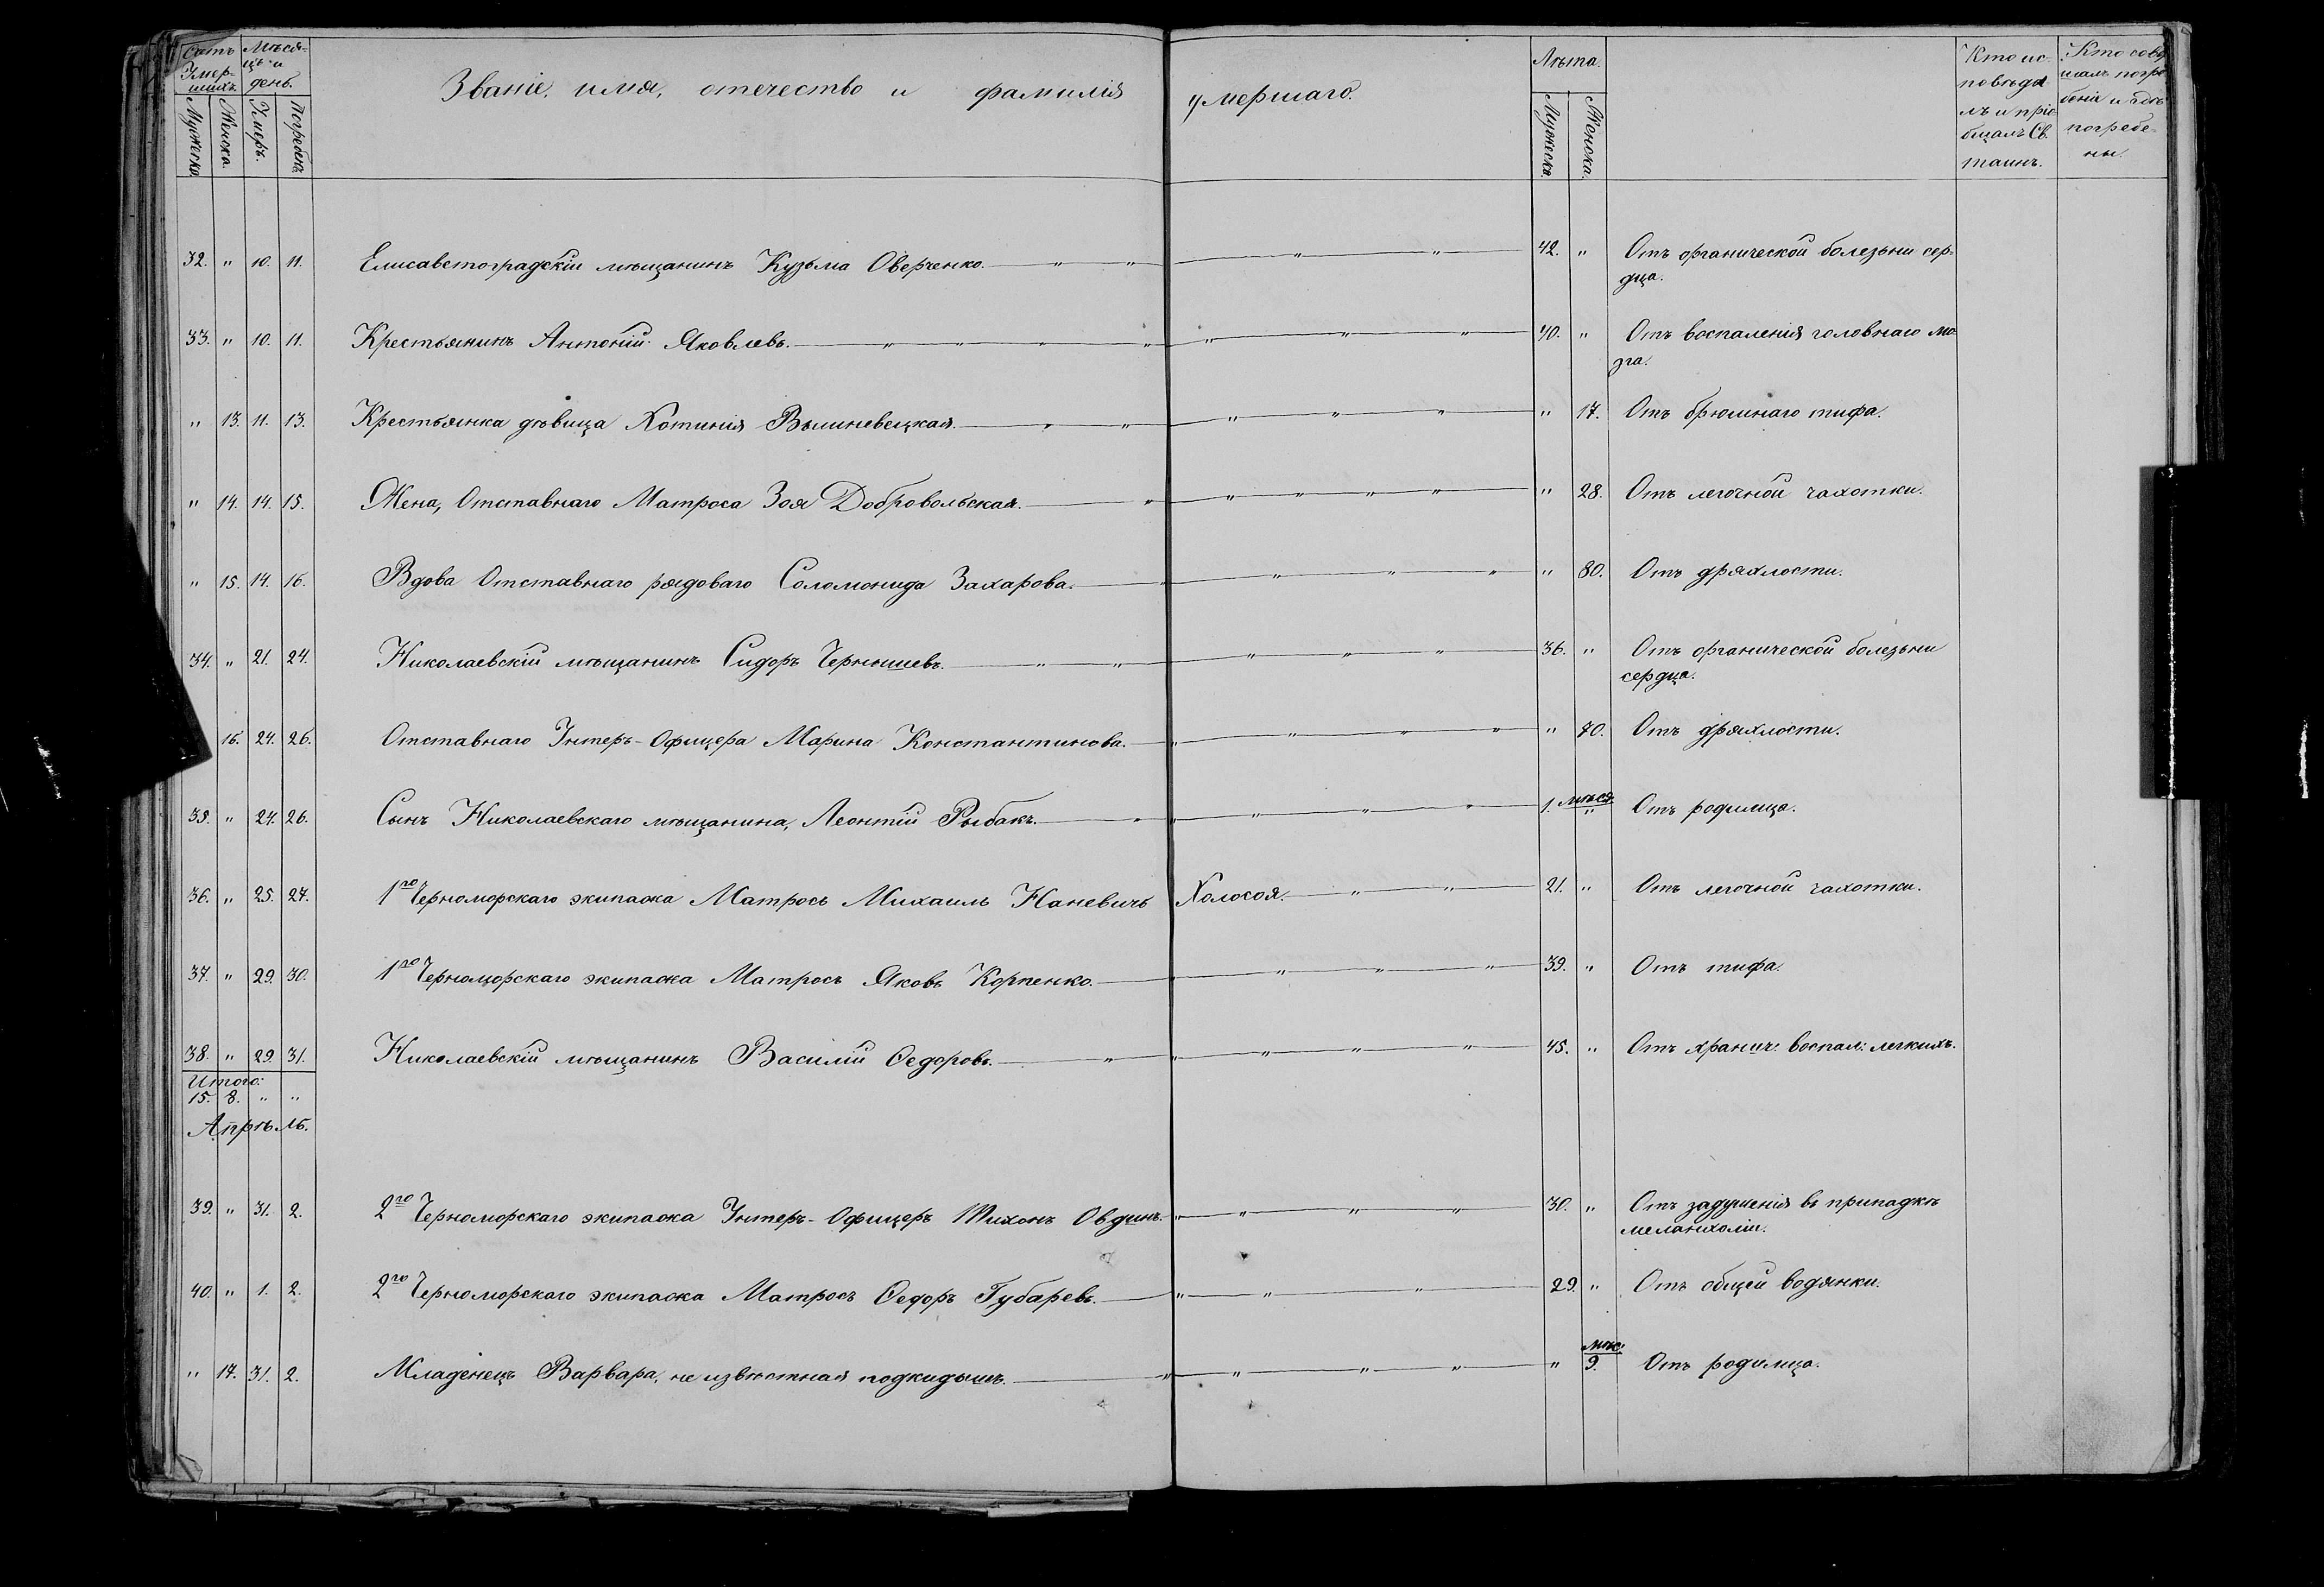 Счетъ Умер-шихъ. Мѣся-цъ и день. Званіе, имя, отечество и фамилія умершаго. Лѣта. Кто ис-повѣда-лъ и пріо-бщалъ Св. таинъ. Кто совер-шалъ погре-беніе и гдѣ погребе-ны.
Мужеска. Женска. Умеръ. Погребенъ. Мужеска. Женска.
32. " 10. 11. Елисаветоградскій мѣщанинъ Кузьма Оверченко. 42. " Отъ органической болезьни сер-
дца.
33. " 10. 11. Крестьянинъ Антоній Яковлевъ. 40. " Отъ воспаленія головнаго мо-
зга.
" 13. 11. 13. Крестьянка дѣвица Хотинія Вылиневецкая. " 17. Отъ брюшнаго тифа.
" 14. 14. 15. Жена, Отставнаго Матроса Зоя Добровольская. " 28. Отъ легочной чахотки.
" 15. 14. 16. Вдова Отставнаго рядоваго Соломонида Захарова. " 80. Отъ дряхлости.
34. " 21. 24. Николаевскій мѣщанинъ Сидоръ Чернышевъ. 36. " Отъ органической болезьни
сердца.
16. 24. 26. Отставнаго Унтеръ-Офицера Марина Константинова. " 70. Отъ дряхлости.
35. " 24. 26. Сынъ Николаевскаго мѣщанина, Леонтій Рыбакъ. 1. мѣся. " Отъ родимца.
36. " 25. 27. 1го Черноморскаго экипажа Матросъ Михаилъ Наневичъ Холосоя. 21. " Отъ легочной чахотки.
37. " 29. 30. 1го Черноморскаго экипажа Матросъ Яковъ Корпенко. 39. " Отъ тифа.
38. " 29. 31. Николаевскій мѣщанинъ Василій Ѳедоровъ. 45. " Отъ хранич: воспал: легкихъ.
Итого:
15. 8. " "
Апрѣль.
39. " 31. 2. 2го Черноморскаго экипажа Унтеръ-Офицеръ Тихонъ Овдинъ. 30. " Отъ задушенія въ припадкѣ
меланхоліи.
40. " 1. 2. 2го Черноморскаго экипажа Матросъ Ѳедоръ Губаревъ. 29. " Отъ общей водянки.
" 17. 31. 2. Младенецъ Варвара, не извѣстная подкидышъ. " мѣс: 9. Отъ родимца.